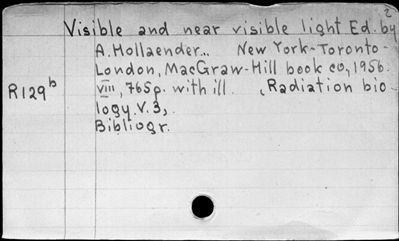 2
Visible and near visible light Ed. by
A. Hollaender.. New York-Toronto-
London, MacGraw-Hill book co., 1956.
R129b VIII, 765p. with ill. (Radiation bio-
logy. V. 3).
Bibliogr.